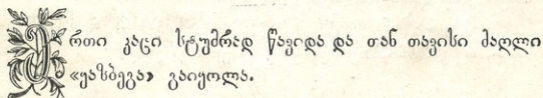 ერთი კაცი სტუმრად წავიდა და თან თავისი ძაღლი
«ყაზბეგა» გაიყოლა.